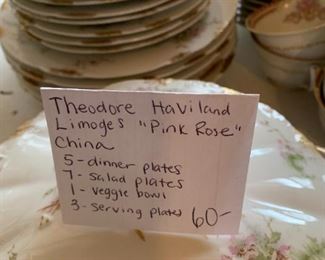 Theodore Haviland
Limoges "Pink Rose"
China
5 - dinner plates
7 - salad plates
1 - veggie bowl
3 - serving plates 60-